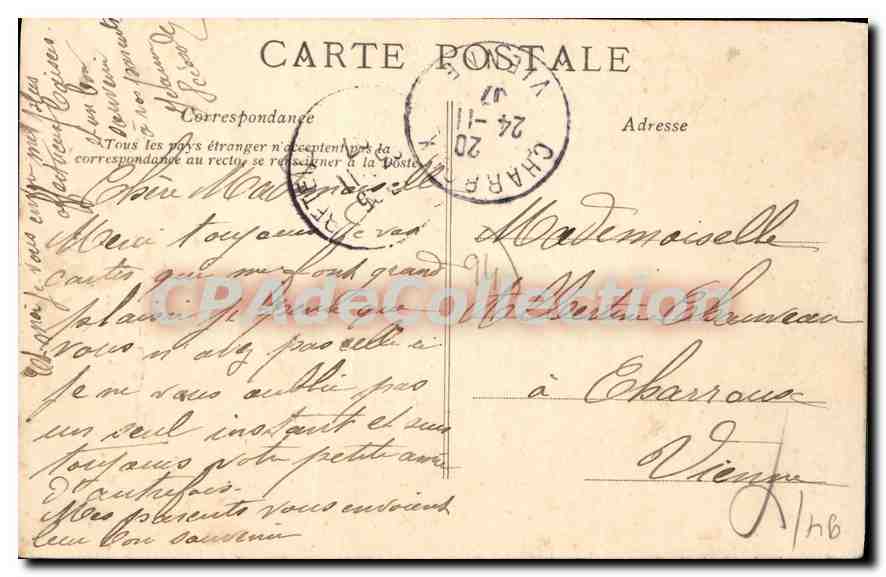 CARTE POSTALE
Correspondance
Tous les pays étranger n'acceptent pas la
correspondance au recto, se renseigner à la Poste
Adresse
Chère Mademoiselle
Merci toujours de vos
cartes qui me font grand
plaisir je pense que
vous n'avez pas celle ci
Je ne vous oublie pas
un seul instant et suis
toujours votre petite amie
d'autrefois.
Mes parents vous envoient
leur bon souvenir
je vous envoie mes plus
affectueux baisers.
et un bon
souvenir
à vos parents
Mademoiselle
Albertine Chauveau
à Charroux
Vienne
CHARROUX
20
24 - 11
07
VIENNE
CPAdeCollection
46
94/